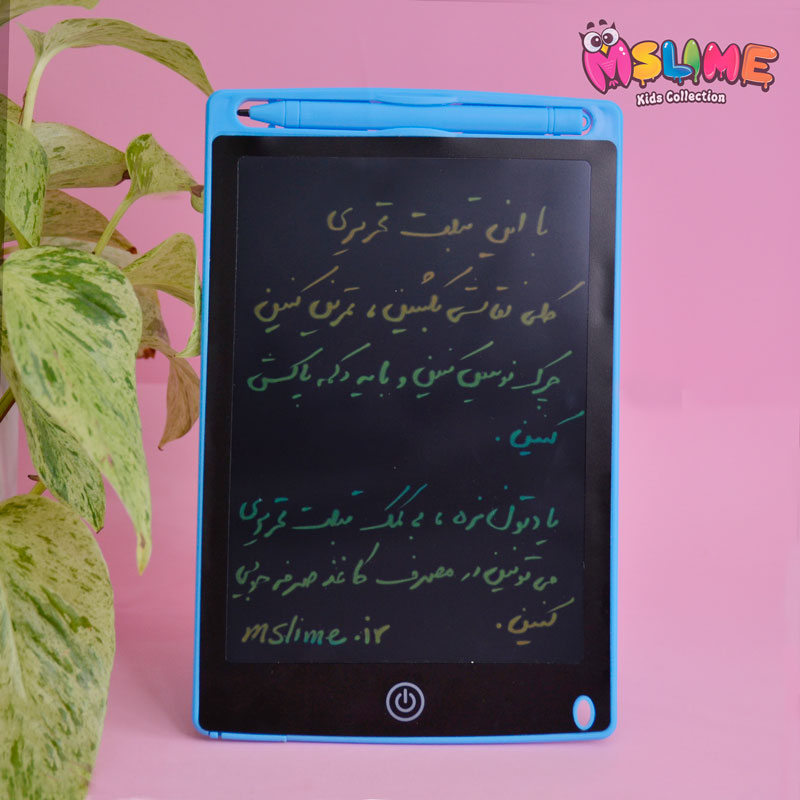 MSLIME
Kids Collection
با این تبلت تحریری
کلی نقاشی بکشین، تمرین کنین
چرک نویس کنین و با یه دکمه پاکش
کنین.
یادتون نره، به کمک تبلت تحریری
می تونین در مصرف کاغذ صرفه جویی
کنین.
mslime.ir